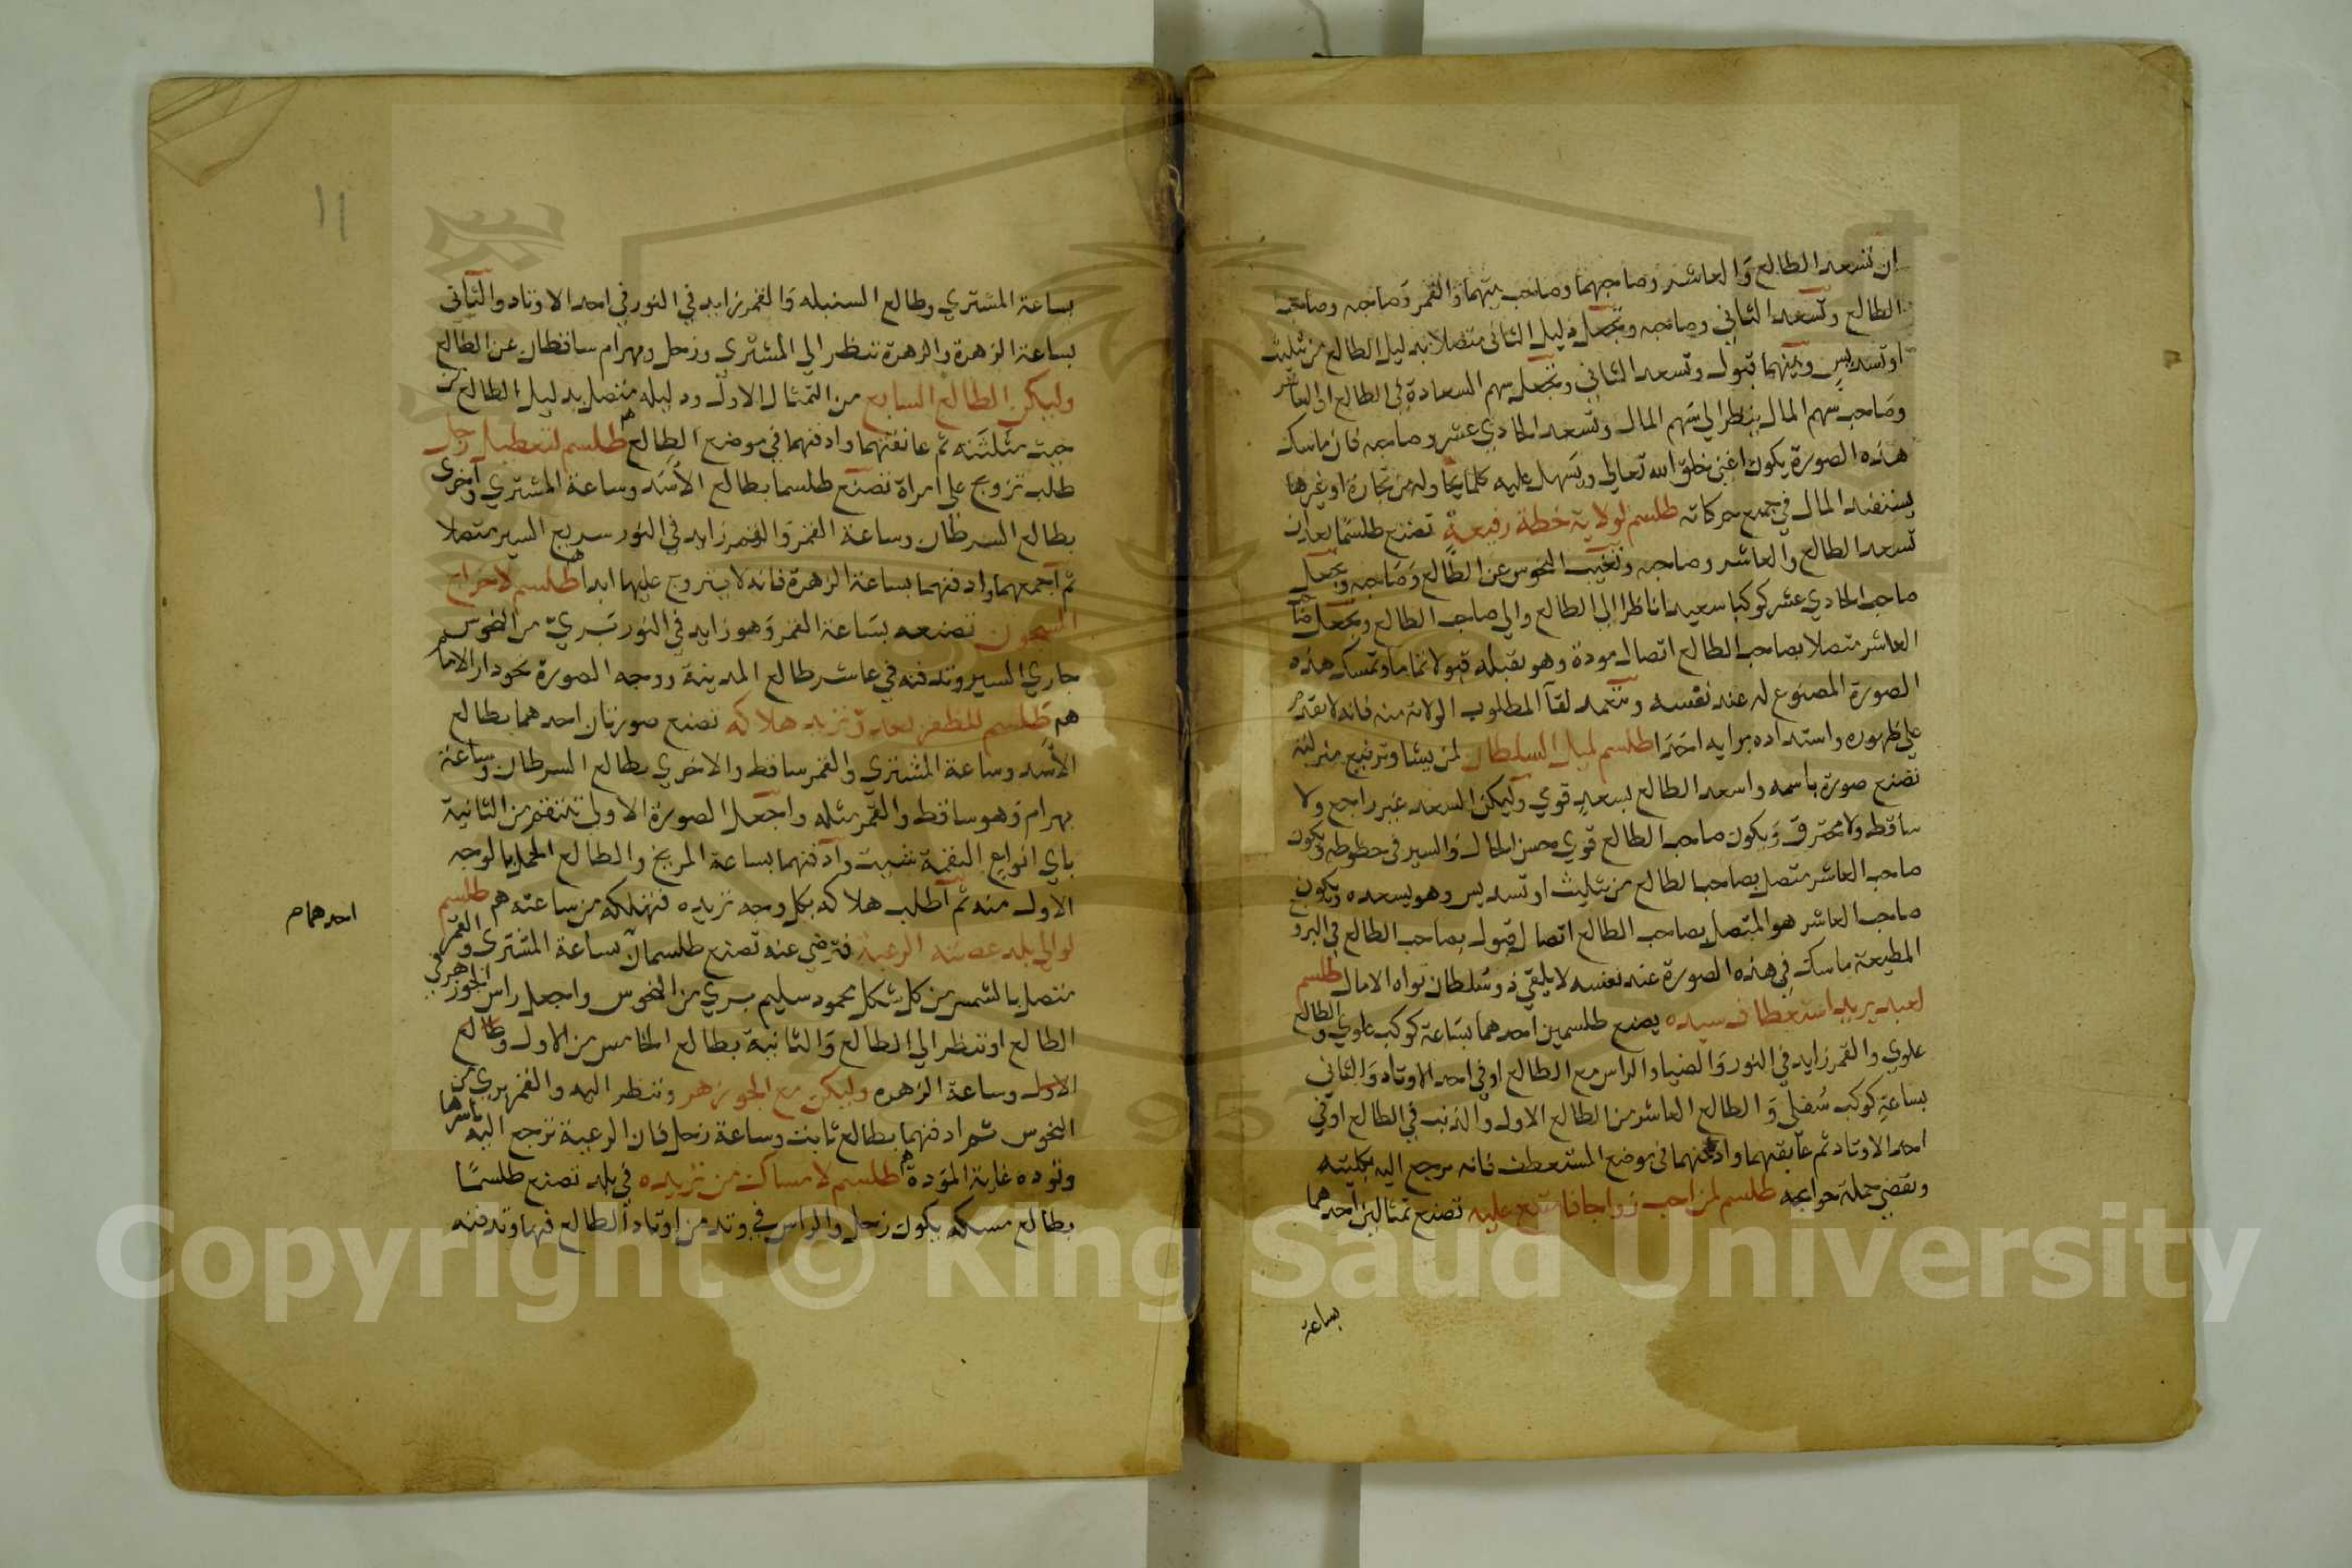 ان تسعد الطالع والعاشر وصاحبهما وصاحب بيتهما والقمر وصاحبه وصاحب
الطالع وتسعد الثاني وصاحبه وتجعل دليل الثاني متصلا بدليل الطالع من تثليث
او تسديس وبينهما قبول وتسعد الثاني وتجعل سهم السعادة في الطالع او العاشر
وصاحب سهم المال ينظر الي سهم المال وتسعد الحادي عشر وصاحبه فان ماسك
هذه الصورة يكون اغني خلق الله تعالي ويسهل عليه كلما يحاوله من تجارة او غيرها
يستفيد المال في جميع حركاته طلسم لولاية خطة رفيعة تصنع طلسما بعد ان
تسعد الطالع والعاشر وصاحبه وتغيب النحوس عن الطالع وصاحبه وتجعل
صاحب الحادي عشر كوكبا سعيدا ناظرا الي الطالع والي صاحب الطالع وتجعل صاحب
العاشر متصلا بصاحب الطالع اتصال مودة وهو يقبله قبولا تماما وتمسك هذه
الصورة المصنوع له عند نفسه ويتعمد لقا المطلوب الولاية منه فانه لا يقدم
علي ظهوره واستبداده برايه احدا طلسم لميل السلطان لمن يشا وترفيع منزلته
تصنع صورة باسمه واسعد الطالع بسعد قوي وليكن السعد غير راجع ولا
ساقط ولا محترق ويكون صاحب الطالع قوي حسن الحال والسير في حظوظه ويكون
صاحب العاشر متصل بصاحب الطالع من تثليث او تسديس وهو يسعده ويكون
صاحب العاشر هو المتصل بصاحب الطالع اتصال قبول بصاحب الطالع في البروج
المطيعة ماسك في هذه الصورة عند نفسه لا يلقي ذو سلطان نواه الامال طلسم
لعبد يريد استعطاف سيده يصنع طلسمين احدهما بساعة كوكب علوي والطالع
علوي والقمر زايد في النور والضيا والراس مع الطالع او في احد الاوتاد والثاني
بساعة كوكب سفلي والطالع العاشر من الطالع الاول والذنب في الطالع او في
احد الاوتاد ثم عانقهما وادفنهما في موضع المستعطف فانه يرجع اليه بكليته
وتقضي جملة حوايجه طلسم لمن احب زواجا فامتنع عليه تصنع تمثالين احدهما
بساعة
١١
بساعة المشتري وطالع السنبله والقمر زايد في النور في احد الاوتاد والثاني
بساعة الزهرة والزهرة تنظر الي المشتري وزحل وبهرام ساقطان عن الطالع
وليكن الطالع السابع من التمثال الاول ودليله متصل بدليل الطالع من
حيث مثلثته ثم عانقهما وادفنهما في موضع الطالع طلسم لتعطيل رجل
طلب تزويج علي امراة تصنع طلسما بطالع الاسد وساعة المشتري واخري
بطالع السرطان وساعة القمر والقمر زايد في النور سريع السير متصلا
ثم اجمعهما وادفنهما بساعة الزهرة فانه لا يتزوج عليها ابدا طلسم لاخراج
المسجون تصنعه بساعة القمر وهو زايد في النور بري من النحوس
جاري السير وتدفنه في عاشر طالع المدينة ووجه الصورة نحو دار الاما
هم طلسم للظفر بعدو تريد هلاكه تصنع صورتان احدهما بطالع
الاسد وساعة المشتري والقمر ساقط والاخري بطالع السرطان وساعة
بهرام وهو ساقط والقمر مثله واجعل الصورة الاولي تنتقم من الثانية
باي انواع النقمة شيت وادفنهما بساعة المريخ والطالع الحمل بالوجه
الاول منه ثم اطلب هلاكه بكل وجه تريده فتهلكه من ساعته هم طلسم
احدهما صح
لوالي بلد عصته الرعية فترضي عنه تصنع طلسمان بساعة المشتري والقمر
متصل بالشمس من كل شكل محمود سليم بري من النحوس واجعل راس الجوزهر في
الطالع او تنظر الي الطالع والثانية بطالع الخامس من الاول وطالع
الاول وساعة الزهره وليكن مع الجوزهر وتنظر اليه والقمر بري من
النحوس ثم ادفنهما بطالع ثابت وساعة زحل فان الرعية ترجع اليه باسرها
وتوده غاية المودة طلسم لامساك من تريده في بلد تصنع طلسما
بطالع مسكه يكون زحل والراس في وتد من اوتاد الطالع فيها وتدفنه
Copyright © King Saud University
1957